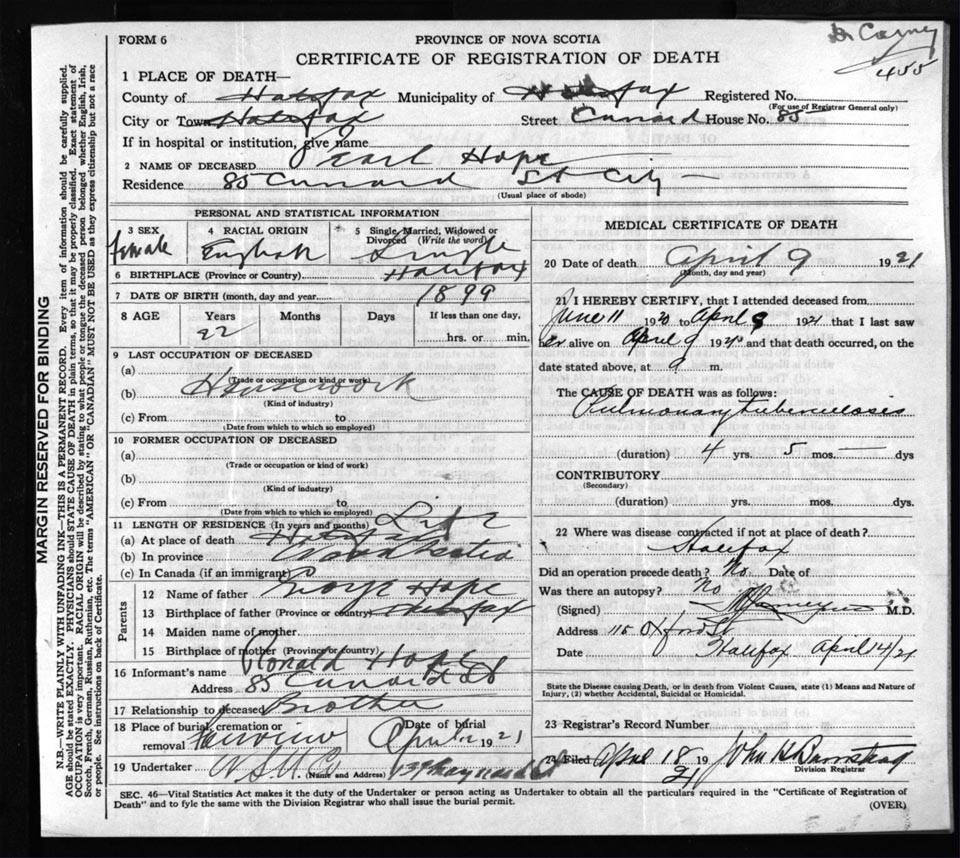 Dr Carney
455
FORM 6
PROVINCE OF NOVA SCOTIA
CERTIFICATE OF REGISTRATION OF DEATH
1 PLACE OF DEATH—
County of Halifax Municipality of Halifax Registered No.
(For use of Registrar General only)
City or Town Halifax Street Cunard House No. 85
If in hospital or institution, give name
2 NAME OF DECEASED Pearl Hope
Residence 85 Cunard St City
(Usual place of abode)
PERSONAL AND STATISTICAL INFORMATION
3 SEX female
4 RACIAL ORIGIN English
5 Single, Married, Widowed or Divorced (Write the word) Single
6 BIRTHPLACE (Province or Country) Halifax
7 DATE OF BIRTH (month, day and year) 1899
8 AGE Years Months Days If less than one day,
22 hrs. or min.
9 LAST OCCUPATION OF DECEASED
(a)
(Trade or occupation or kind or work)
(b) Housework
(Kind of industry)
(c) From to
(Date from which to which so employed)
10 FORMER OCCUPATION OF DECEASED
(a)
(Trade or occupation or kind of work)
(b)
(Kind of industry)
(c) From to
(Date from which to which so employed)
11 LENGTH OF RESIDENCE (In years and months) Life
(a) At place of death Halifax
(b) In province Nova Scotia
(c) In Canada (if an immigrant)
Parents
12 Name of father George Hope
13 Birthplace of father (Province or country) Halifax
14 Maiden name of mother
15 Birthplace of mother (Province or country)
16 Informant's name Ronald Hope
Address 85 Cunard St
17 Relationship to deceased Brother
18 Place of burial, cremation or removal Fairview Date of burial April 12 1921
19 Undertaker N S U Co (Name and Address) Maynard St
MEDICAL CERTIFICATE OF DEATH
20 Date of death April 9 1921
(Month, day and year)
21 I HEREBY CERTIFY, that I attended deceased from
June 11 1920 to April 9 1921 that I last saw
her alive on April 9 192 and that death occurred, on the
date stated above, at 9 m.
The CAUSE OF DEATH was as follows:
Pulmonary tuberculosis
(duration) 4 yrs. 5 mos. — dys
CONTRIBUTORY
(Secondary)
(duration) yrs. mos. dys.
22 Where was disease contracted if not at place of death?
Halifax
Did an operation precede death? No. Date of
Was there an autopsy? No
(Signed) M.D.
Address 115 Oxford St
Date Halifax April 14/21
State the Disease causing Death, or in death from Violent Causes, state (1) Means and Nature of
Injury, (2) whether Accidental, Suicidal or Homicidal.
23 Registrar's Record Number
24 Filed April 18 19 21 John H Barnstead
Division Registrar
SEC. 46—Vital Statistics Act makes it the duty of the Undertaker or person acting as Undertaker to obtain all the particulars required in the "Certificate of Registration of
Death" and to fyle the same with the Division Registrar who shall issue the burial permit.
(OVER)
MARGIN RESERVED FOR BINDING
N.B.—WRITE PLAINLY WITH UNFADING INK—THIS IS A PERMANENT RECORD. Every item of information should be carefully supplied.
AGE should be stated EXACTLY. PHYSICIANS should STATE CAUSE OF DEATH in plain terms, so that it may be properly classified. Exact statement of
OCCUPATION is very important. RACIAL ORIGIN will be described by stating to what people or tongue the deceased person belonged whether English, Irish,
Scotch, French, German, Russian, Ruthenian, etc. The terms "AMERICAN" OR "CANADIAN" MUST NOT BE USED as they express citizenship but not a race
See instructions on back of Certificate.